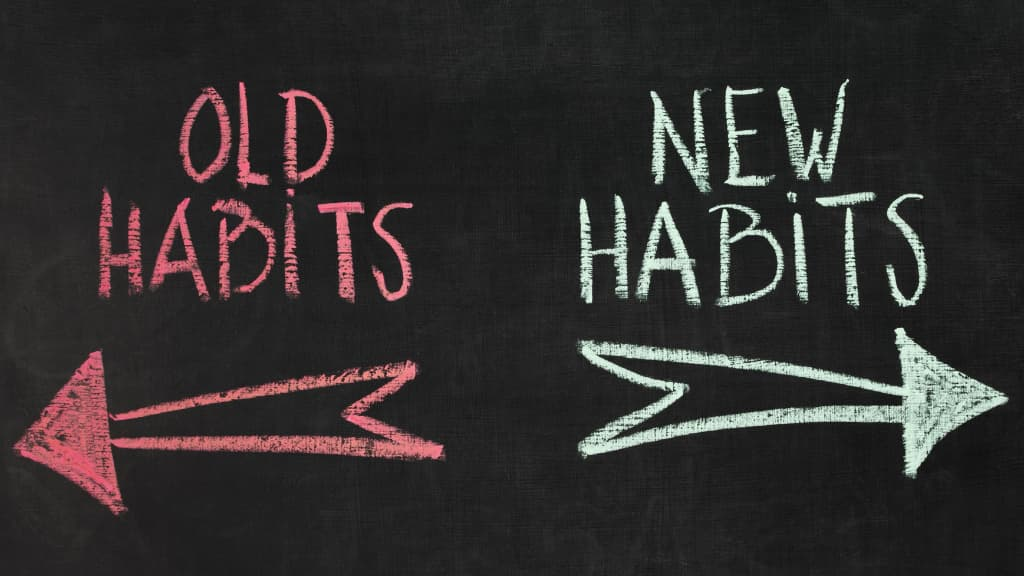 OLD
HABiTS
NEW
HABiTS